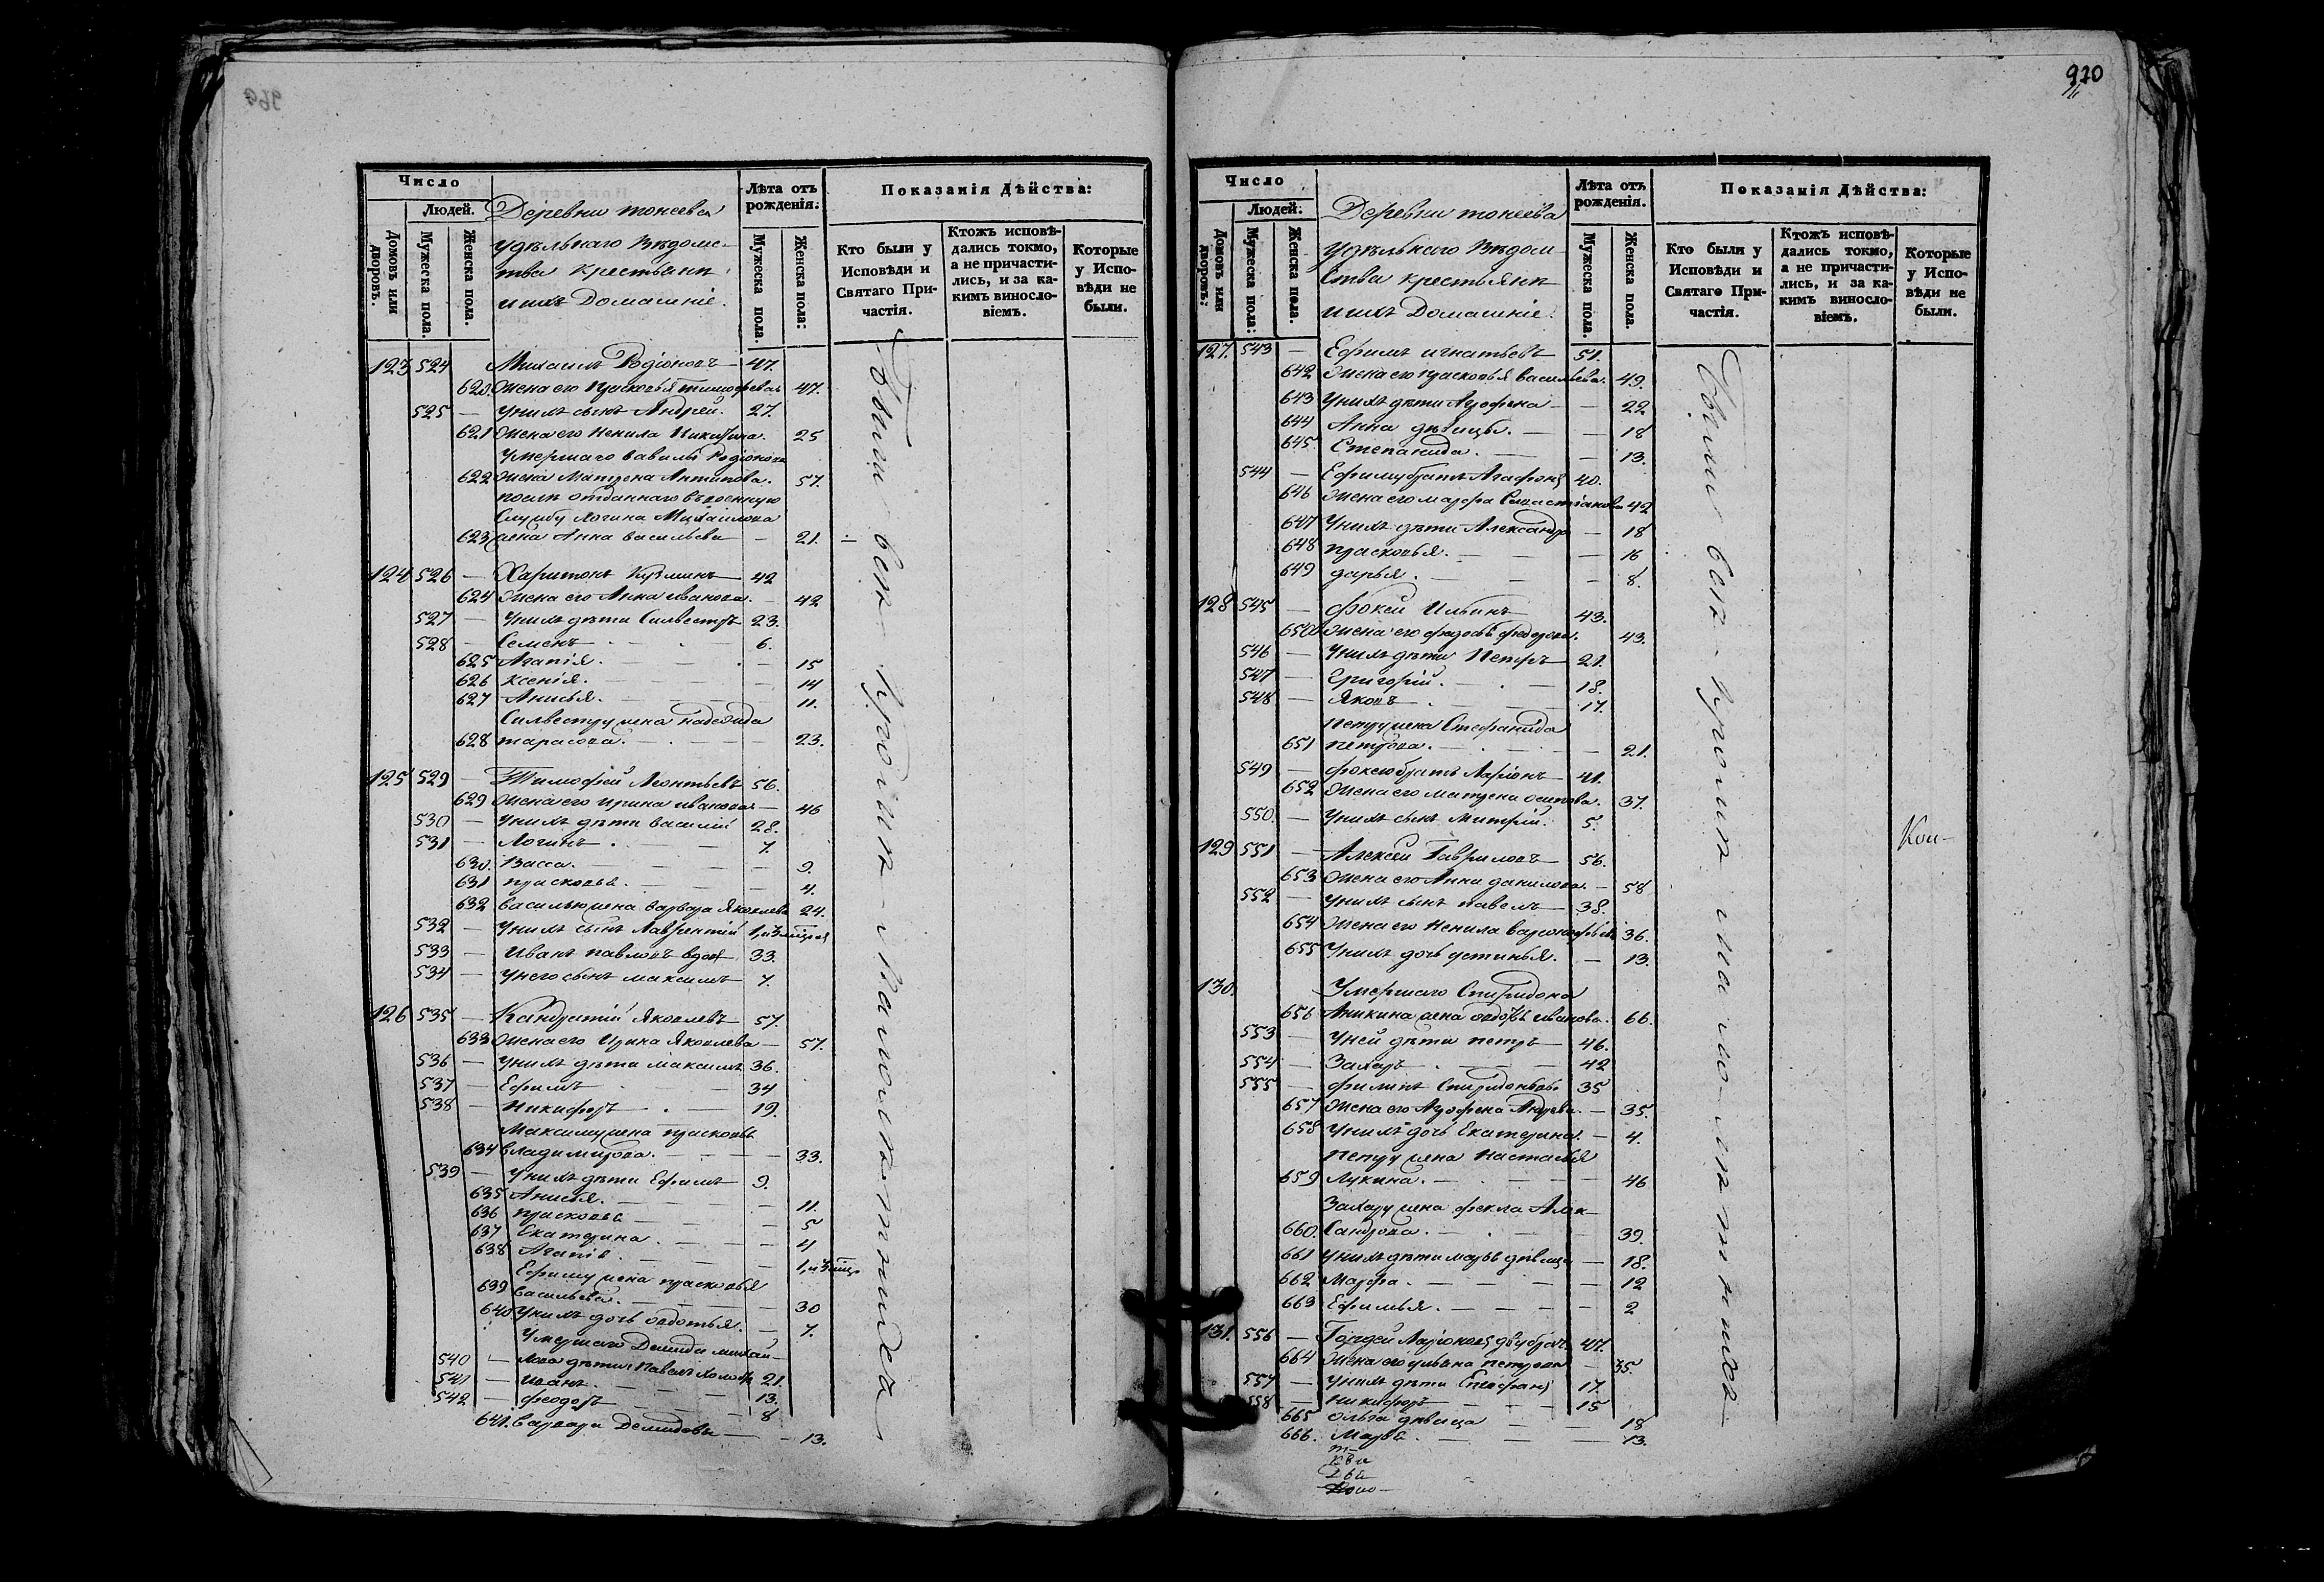 970
Число
Людей.
Домовъ или дворовъ.
Мужеска пола.
Женска пола.
Деревни тонеева
удѣльнаго Вѣдомс-
тва крестьянѣ
ишхъ Домашнiе.
Лѣта отъ рожденiя.
Мужеска пола.
Женска пола:
Показанiя Дѣйства:
Кто были у Исповѣди и Святаго Причастiя.
Ктожъ исповѣдались токмо, а не причастились, и за какимъ винословiемъ.
Которые у Исповѣди не были.
123 524 Михаилъ Родiоновъ 47.
620. Жена его Прасковья тимофѣева 47.
525 — Унихъ сынъ Андрей. 27.
621 Жена его Ненила Никитина. 25
Умершаго вавилы Родiонова
622 жена Матрена Антипова. 57.
послѣ отданнаго въ военную
Службу логина Михаилова
623 жена Анна васильева — 21.
124 526 — Харитонъ Кузминъ 42
624 Жена его Анна иванова. 42
527 — Унихъ дѣти Сильвестръ 23.
528 — Семенъ 6.
625 Агапiя. 15
626 ксенiя. 14
627 Анисья. 11.
Сильвестру жена надежда
628 тарасова. 23.
125 529 — Тимофей Леонтьевъ 56.
629 Жена его ирина иванова 46
530 — Унихъ дѣти василiй 28.
531 — Логинъ 7.
630. Васса. 9.
631 прасковья. 4.
632 василью жена варвара Яковлева 24.
532 — Унихъ сынъ Лаврентiй
533 — Иванъ павловъ вдов 33.
534 — Унего сынъ максимъ 7.
126 535 — Кандратiй Яковлевъ 57.
633 Жена его Ирина Яковлева 57.
536 — Унихъ дѣти максимъ 36.
537 — Ефимъ 34
538 — Никифоръ 19.
Максиму жена прасковья
634 владимирова. 33.
539 — Унихъ дѣти Ефимъ 9.
635 Анисья. 11.
636 прасковья 5
637 Екатерина. 4
638 Агапiя.
Ефиму жена прасковья
639 васильева. 30
640 Унихъ дочь авдотья. 7.
Умершаго Демида михай-
540 — лова дѣти Павелъ холостъ 21.
541 — иванъ. 13.
542 — феодоръ 8
641. варвара Демидова 13.
Были вси
Число
Людей:
Домовъ или дворовъ:
Мужеска пола:
Женска пола.
Деревни тонеева
удѣльнаго Вѣдом-
ства крестьянѣ
ишхъ Домашнiе.
Лѣта отъ рожденiя.
Мужеска пола.
Женска пола.
Показанiя Дѣйства:
Кто были у Исповѣди и Святаго Причастiя.
Ктожъ исповѣдались токмо, а не причастились, и за какимъ винословiемъ.
Которые у Исповѣди не были.
127. 543 — Ефимъ игнатьевъ 51.
642 Жена его прасковья васильева. 49.
643 Унихъ дѣти Агрофена 22
644 Анна дѣвицы. 18
645. Степанида. 13.
544 — Ефиму братъ Агафонъ 40.
646 Жена его марфа Севастiанова 42
647 Унихъ дѣти Александра 18
648 прасковья. 16
649 дарья. 8.
128 545 — фокей Ильинъ 43.
650 Жена его федосья федорова. 43.
546 — Унихъ дѣти Петръ 21.
547 — Григорiй. 18.
548 — Яковъ 17.
петру жена Стефанида
651 петрова. 21.
549 — фокею братъ Ларiонъ 41.
652 Жена его матрена осипова. 37.
550. — Унихъ сынъ митрiй. 5.
129 551 — Алексей Гавриловъ 56.
653 Жена его Анна данилова. 58
552 — Унихъ сынъ павелъ 38.
654 Жена его Ненила варфоломеева 36.
655 Унихъ дочь устинья. 13.
130. Умершаго Спиридона
656 Аникина жена авдотья иванова. 66.
553 — Уней дѣти петръ 46.
554 — Захаръ 42
555 — филипъ Спиридоновъ 35
657 Жена его Агрофена Андреева. 35.
658 Унихъ дочь Екатерина. 4.
петру жена настасья
659 Лукина. 46
Захару жена фекла Алек-
660. сандрова. 39.
661 Унихъ дѣти марья дѣвица 18.
662 Марфа. 12
663 Ефимья. 2
131. 556 — Гордей Ларiоновъ 47.
664 Жена его ульяна петрова 35.
557 — Унихъ дѣти Епифанъ 17.
558 — Никифоръ 15
665 ольга дѣвица 18
666. Марья. 13.
Были вси
Кон-